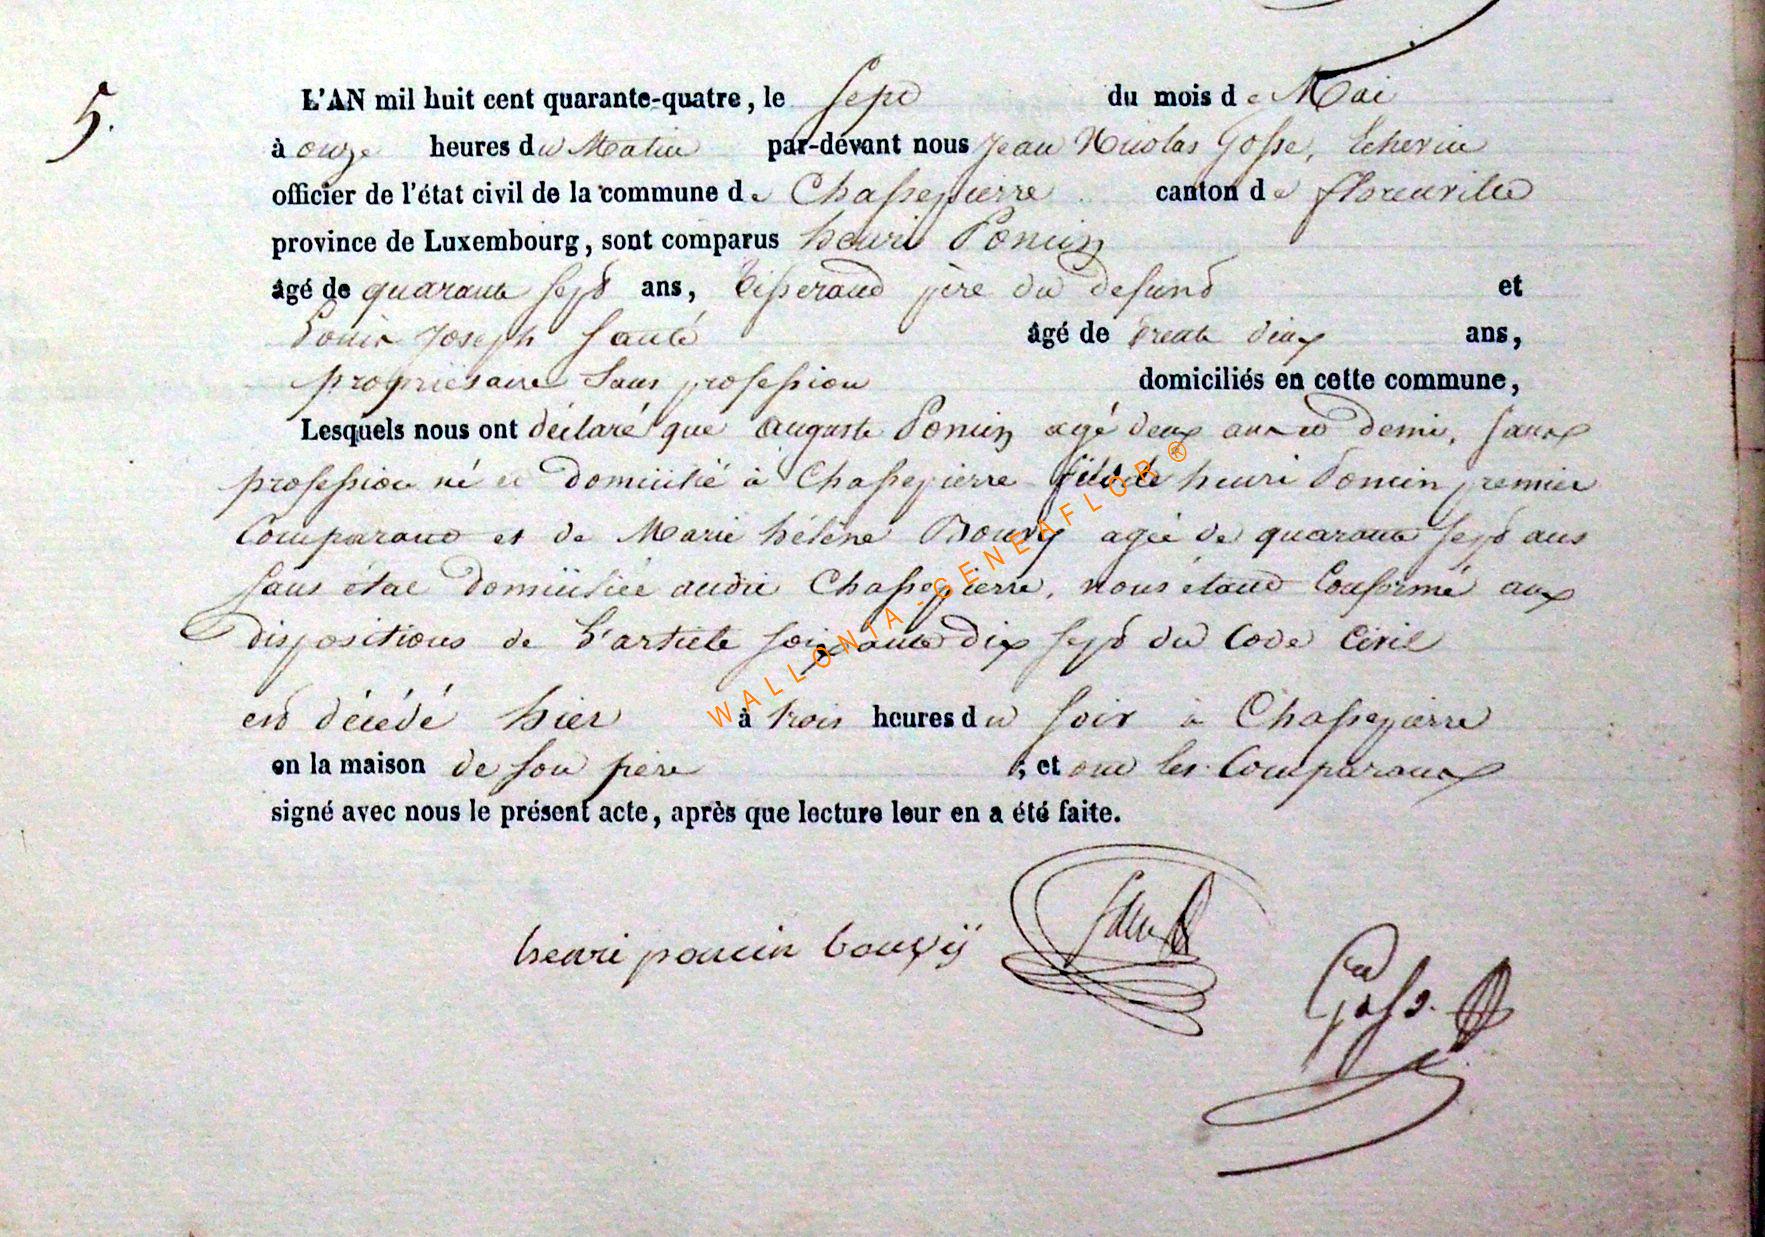 5.
L'AN mil huit cent quarante-quatre, le sept du mois de Mai
à onze heures du Matin par-devant nous Jean Nicolas Gosse, Echevin
officier de l'état civil de la commune de Chassepierre canton de florenville
province de Luxembourg, sont comparus henri Poncin
âgé de quarante sept ans, Tisserand père du defunt et
Louis Joseph Santé âgé de trente deux ans,
propriétaire sans profession domiciliés en cette commune,
Lesquels nous ont déclaré que auguste Poncin agé deux ans et demi, sans
profession né et domicilié à Chassepierre fils de henri Poncin premier
Comparant et de Marie hélène Bouvy agée de quarante sept ans
sans état domiciliée audit Chassepierre, nous étant Conformé aux
dispositions de l'article soixante dix sept du Code Civil
est décédé hier à trois heures du soir à Chassepierre
en la maison de son père ; et ont les Comparants
signé avec nous le présent acte, après que lecture leur en a été faite.
henri poncin bouvÿ
Gosse
WALLONIA-GENEAFLOR ®